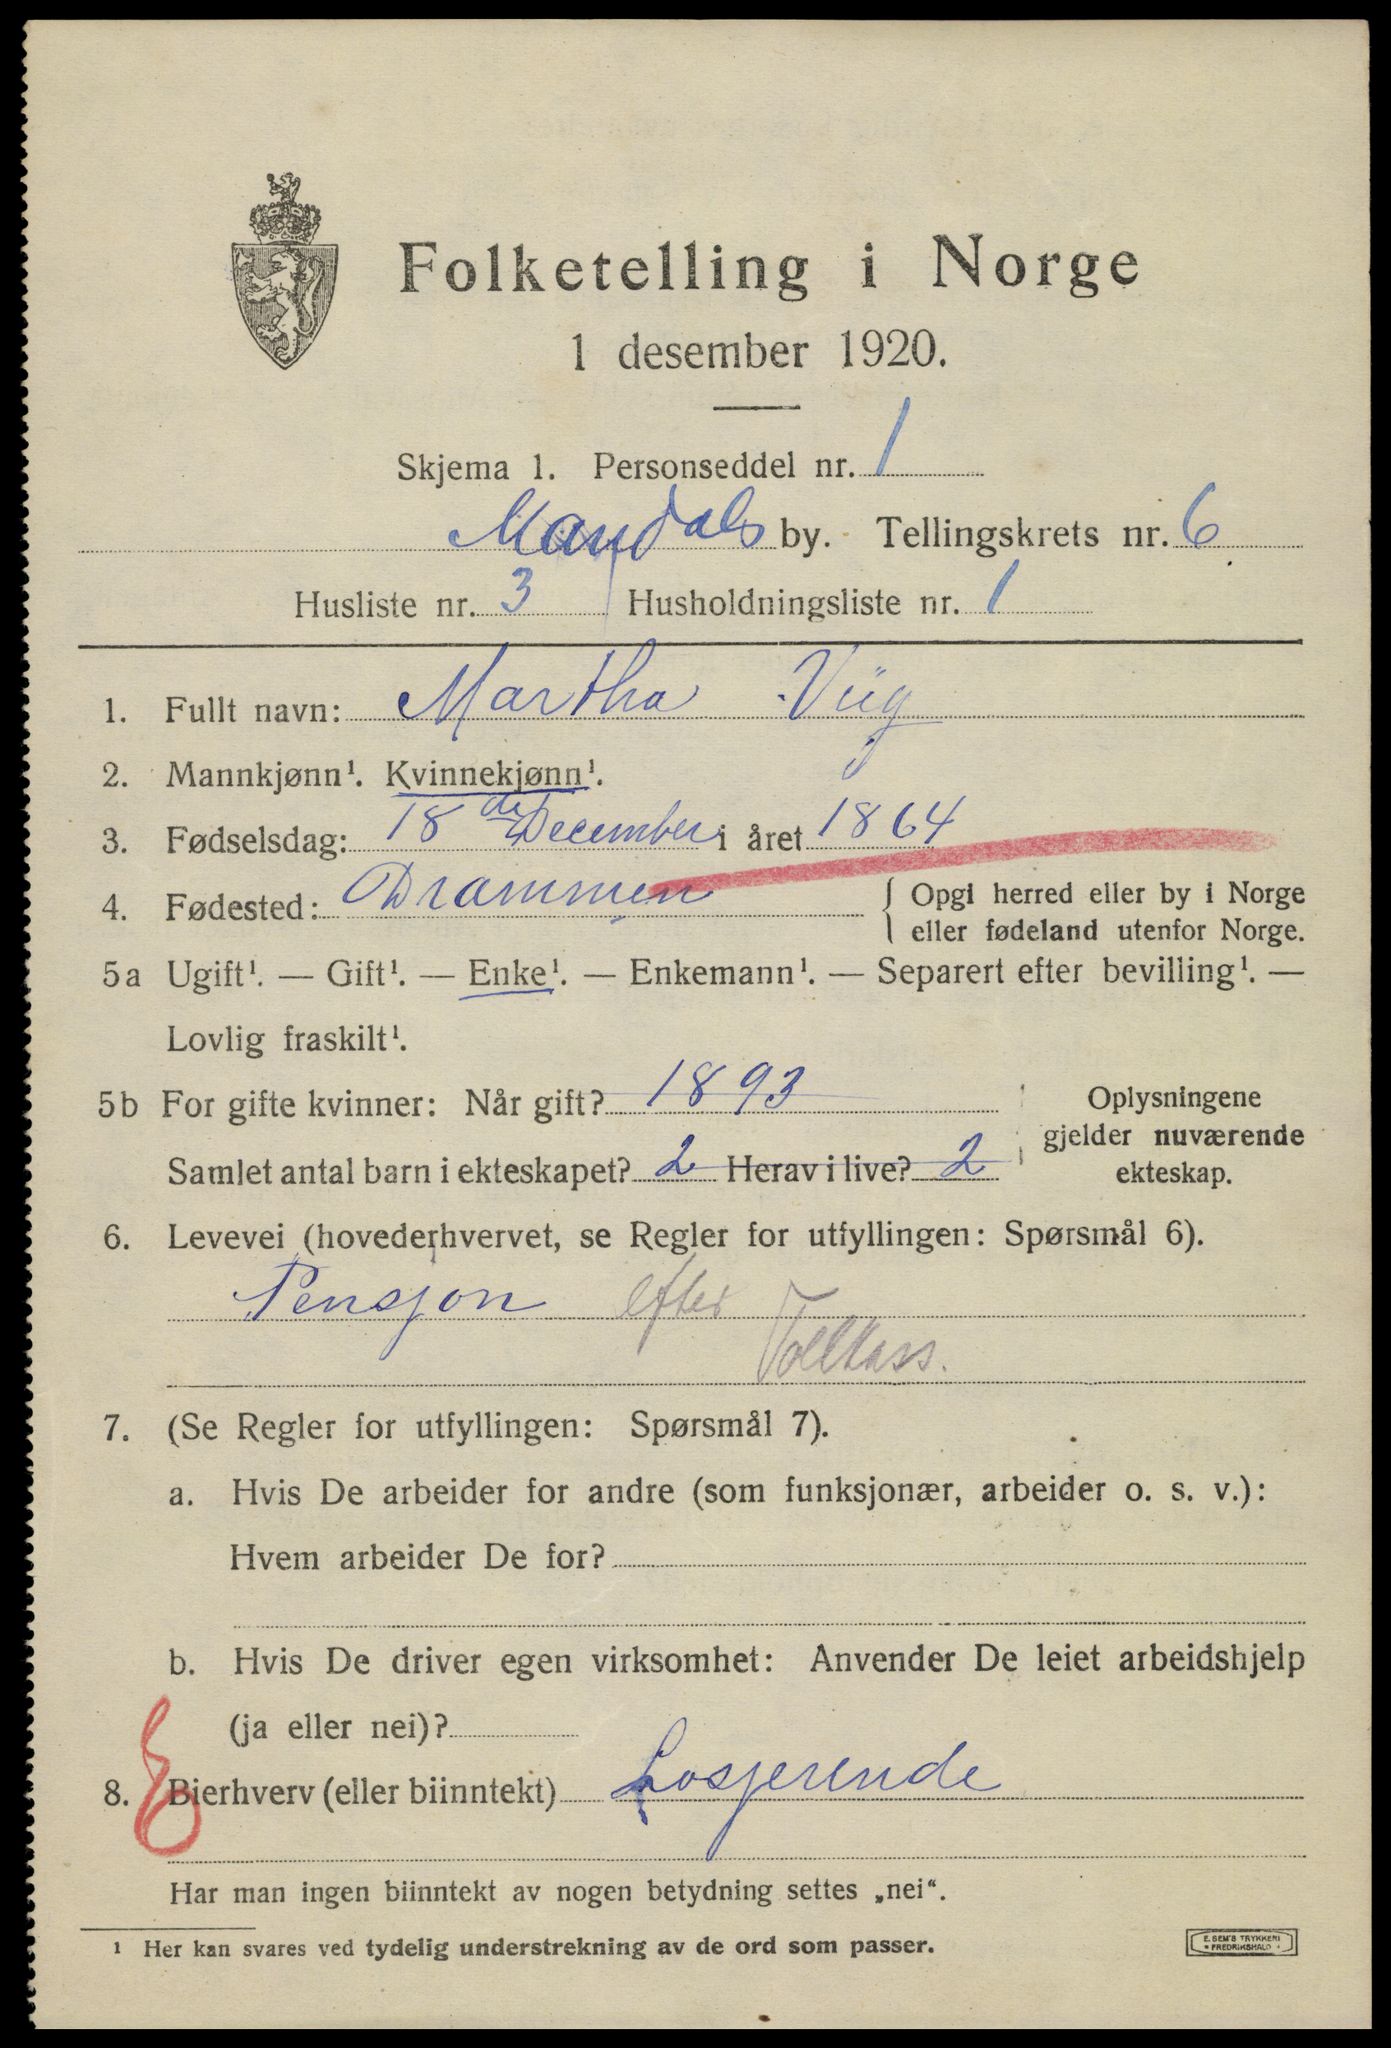 Folketelling i Norge
1 desember 1920.
Skjema 1. Personseddel nr. 1
Mandals by. Tellingskrets nr. 6
Husliste nr. 3 Husholdningsliste nr. 1
1. Fullt navn: Martha Viig
2. Mannkjønn¹. Kvinnekjønn¹.
3. Fødselsdag: 18 de December i året 1864
4. Fødested: Drammen { Opgi herred eller by i Norge
eller fødeland utenfor Norge.
5a Ugift¹. — Gift¹. — Enke¹. — Enkemann¹. — Separert efter bevilling¹. —
Lovlig fraskilt¹.
5b For gifte kvinner: Når gift? 1893 Oplysningene
gjelder nuværende
Samlet antal barn i ekteskapet? 2 Herav i live? 2 ekteskap.
6. Levevei (hovederhvervet, se Regler for utfyllingen: Spørsmål 6).
Pensjon efter
Tollkass.
7. (Se Regler for utfyllingen: Spørsmål 7).
a. Hvis De arbeider for andre (som funksjonær, arbeider o. s. v.):
Hvem arbeider De for?
b. Hvis De driver egen virksomhet: Anvender De leiet arbeidshjelp
(ja eller nei)?
8. Bierhverv (eller biinntekt) Losjerende
Har man ingen biinntekt av nogen betydning settes „nei“.
¹ Her kan svares ved tydelig understrekning av de ord som passer.
E. SEM'S TRYKKERI
• FREDRIKSHALD •